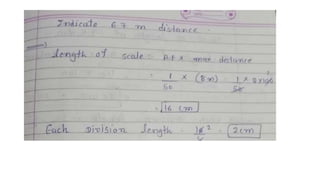 Indicate 6.7 m distance.
Length of scale = R.F x max distance
= 1/50 x (8m) = 1/50 x 8 x 100
= 16 cm
Each Division length = 16/8 2 = 2cm